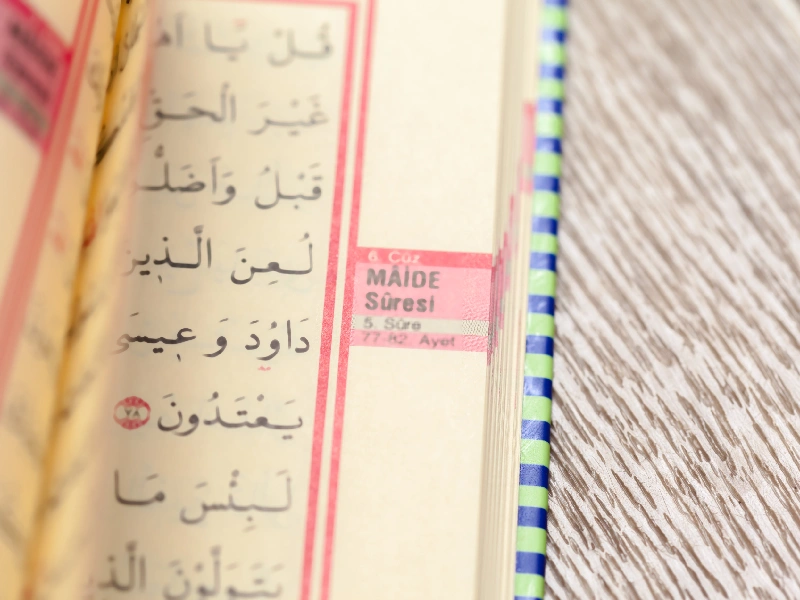 قُلْ يَا
غَيْرَ الْحَقِّ
قَبْلُ وَاَضَلُّ
لُعِنَ الَّذٖينَ
دَاوُدَ وَ عٖيسَى
يَعْتَدُونَ ٧٨
لَبِئْسَ مَا
يَتَوَلَّوْنَ الَّذ
6. Cüz
MÂİDE
Sûresi
5. Sûre
77-82. Ayet